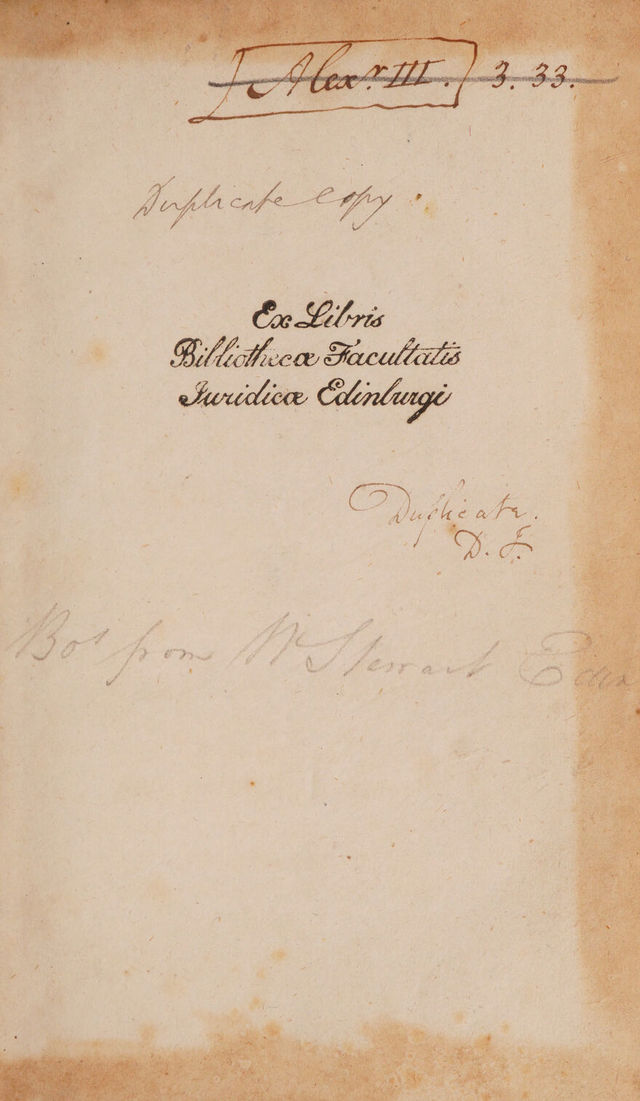 Alexr. III. 3. 33.
Duplicate copy.
Ex Libris
Bibliothecæ Facultatis
Juridicæ Edinburgi
Duplicate.
D. F.
Bot from Wm Stewart Edin